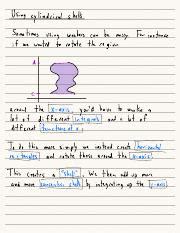 Using cylindrical shells
Sometimes using washers can be messy. For instance
if we wanted to rotate the region
around the x-axis, you'd have to make a
lot of different integrals and a lot of
different functions of x.
To do this more simply we instead create horizontal
rectangles and rotate those around the x-axis.
This creates a "shell". We then add up more
and more concentric shells by integrating up the y-axis.